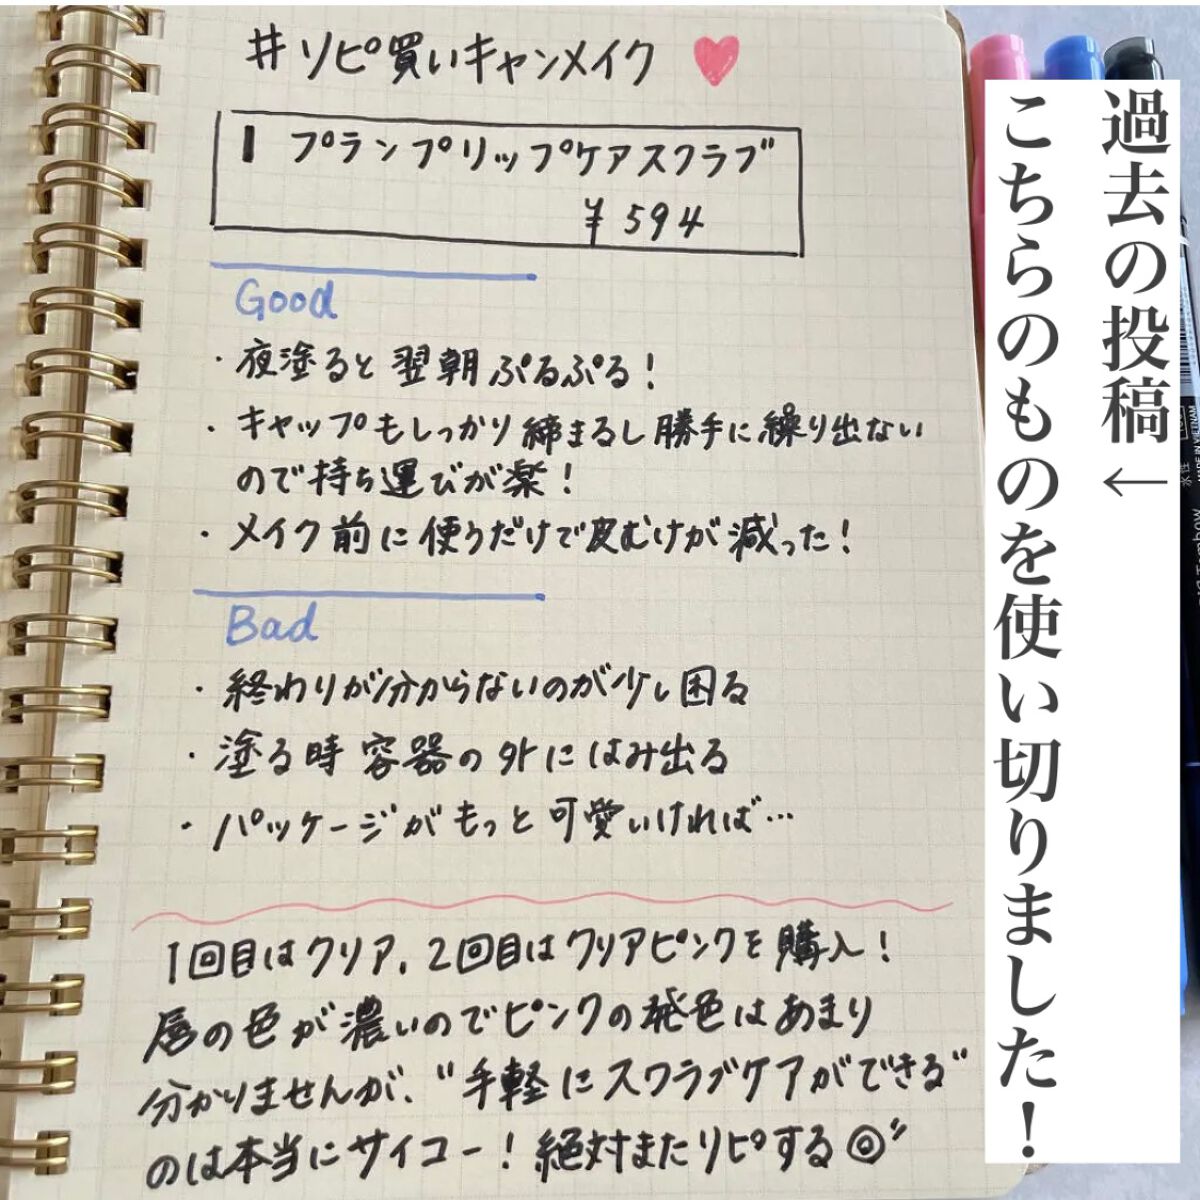 #リピ買いキャンメイク
1 プランプリップケアスクラブ
¥594
Good
・夜塗ると翌朝ぷるぷる!
・キャップもしっかり締まるし勝手に繰り出ない
ので持ち運びが楽!
・メイク前に使うだけで皮むけが減った!
Bad
・終わりが分からないのが少し困る
・塗る時容器の外にはみ出る
・パッケージがもっと可愛いければ…
1回目はクリア、2回目はクリアピンクを購入!
唇の色が濃いのでピンクの発色はあまり
分かりませんが、“手軽にスクラブケアができる”
のは本当にサイコー!絶対またリピする◎〃
過去の投稿←
こちらのものを使い切りました!
水性